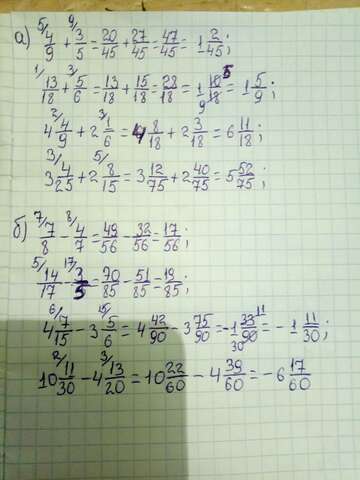 а) ⁵/4/9 + ⁹/3/5 = 20/45 + 27/45 = 47/45 = 1 2/45;
¹/13/18 + ³/5/6 = 13/18 + 15/18 = 28/18 = 1 10/18 5/9 = 1 5/9;
4 ²/4/9 + 2 ³/1/6 = 4 8/18 + 2 3/18 = 6 11/18;
3 ³/4/25 + 2 ⁵/8/15 = 3 12/75 + 2 40/75 = 5 52/75;
б) ⁷/7/8 − ⁸/4/7 = 49/56 − 32/56 = 17/56;
⁵/14/17 − ¹⁷/3/5 = 70/85 − 51/85 = 19/85;
4 ⁶/7/15 − 3 ¹⁵/5/6 = 4 42/90 − 3 75/90 = −1 33/90 11/30 = −1 11/30;
10 ²/11/30 − 4 ³/13/20 = 10 22/60 − 4 39/60 = −6 17/60